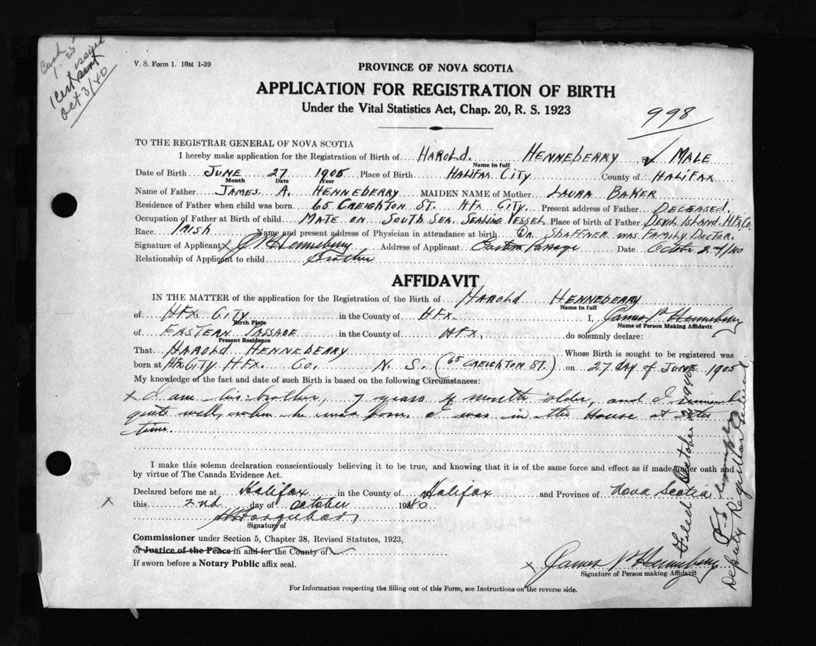 Card
issued
Cert sent
Oct 3/40
V. S. Form 1. 10M 1-39
PROVINCE OF NOVA SCOTIA
APPLICATION FOR REGISTRATION OF BIRTH
Under the Vital Statistics Act, Chap. 20, R. S. 1923
998
TO THE REGISTRAR GENERAL OF NOVA SCOTIA
I hereby make application for the Registration of Birth of HAROLD. HENNEBERRY MALE
Name in full
Date of Birth JUNE 27 1905 Place of Birth HALIFAX CITY County of HALIFAX
Month Date Year
Name of Father JAMES A. HENNEBERRY MAIDEN NAME of Mother LAURA BAKER
Residence of Father when child was born 65 CREIGHTON ST. HFX CITY. Present address of Father DECEASED.
Occupation of Father at Birth of child MATE ON SOUTH SEA SEALING VESSEL Place of birth of Father DEVIL ISLAND. HFX. CO.
Race IRISH Name and present address of Physician in attendance at birth DR. SHAFFNER WAS FAMILY DOCTOR.
Signature of Applicant X J P Henneberry Address of Applicant Eastern Passage Date October 2nd/40
Relationship of Applicant to child Brother
AFFIDAVIT
IN THE MATTER of the application for the Registration of the Birth of HAROLD HENNEBERRY
Name in full
of HFX CITY in the County of HFX. I, James P. Henneberry
Birth Place Name of Person Making Affidavit
of EASTERN PASSAGE in the County of HFX. do solemnly declare:
Present Residence
That HAROLD HENNEBERRY Whose Birth is sought to be registered was
born at HFX CITY HFX. Co. N. S. (65 CREIGHTON ST.) on 27 DAY OF JUNE 1905
My knowledge of the fact and date of such Birth is based on the following Circumstances:
X I am his brother, 7 years months older, and I remember
quite well, when he was born. I was in the House at the
time.
I make this solemn declaration conscientiously believing it to be true, and knowing that it is of the same force and effect as if made under oath and
by virtue of The Canada Evidence Act.
Declared before me at Halifax in the County of Halifax and Province of Nova Scotia
X this 2nd day of October 1940.
Signature of
Commissioner under Section 5, Chapter 38, Revised Statutes, 1923,
or Justice of the Peace in and for the County of
If sworn before a Notary Public affix seal.
X James P. Henneberry
Signature of Person making Affidavit
For Information respecting the filling out of this Form, see Instructions on the reverse side.
Filed October 1940
Deputy Registrar General